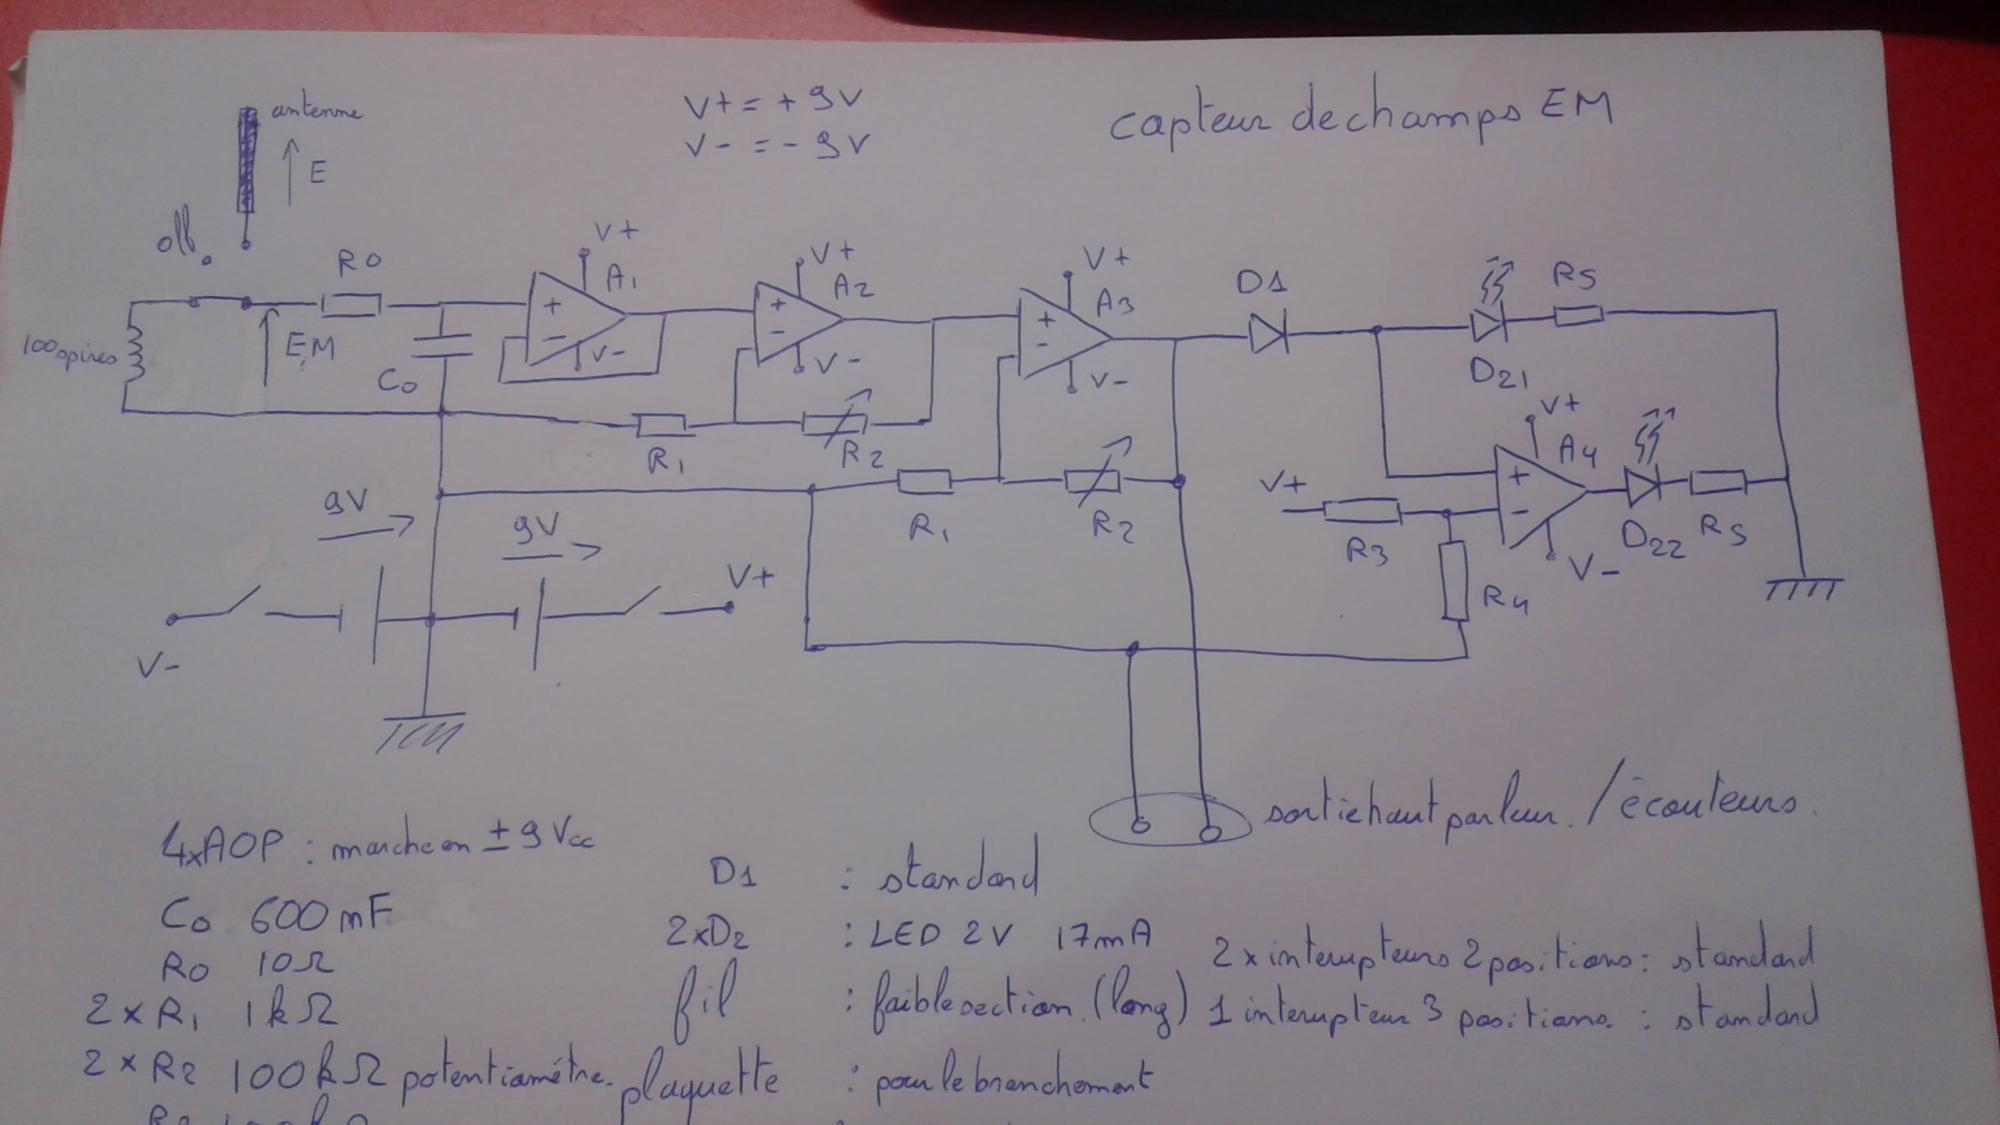 capteur de champs EM
V+ = + 9V
V- = - 9V
antenne
E
off
R0
100 spires
E,M
C0
V+
A1
V-
V+
A2
V-
V+
A3
V-
D1
D21
R5
R1
R2
R1
R2
V+
A4
V-
V+
R3
R4
D22
R5
9V
9V
V-
V+
sortie haut parleur / écouteurs.
4xAOP : marche en ± 9 Vcc
C0 600 nF
R0 10Ω
2 x R1 1kΩ
2 x R2 100kΩ potentiomètre.
D1 : standard
2xD2 : LED 2V 17mA
fil : faible section (long)
plaquette : pour le branchement
2 x interupteurs 2 positions : standard
1 interupteur 3 positions : standard